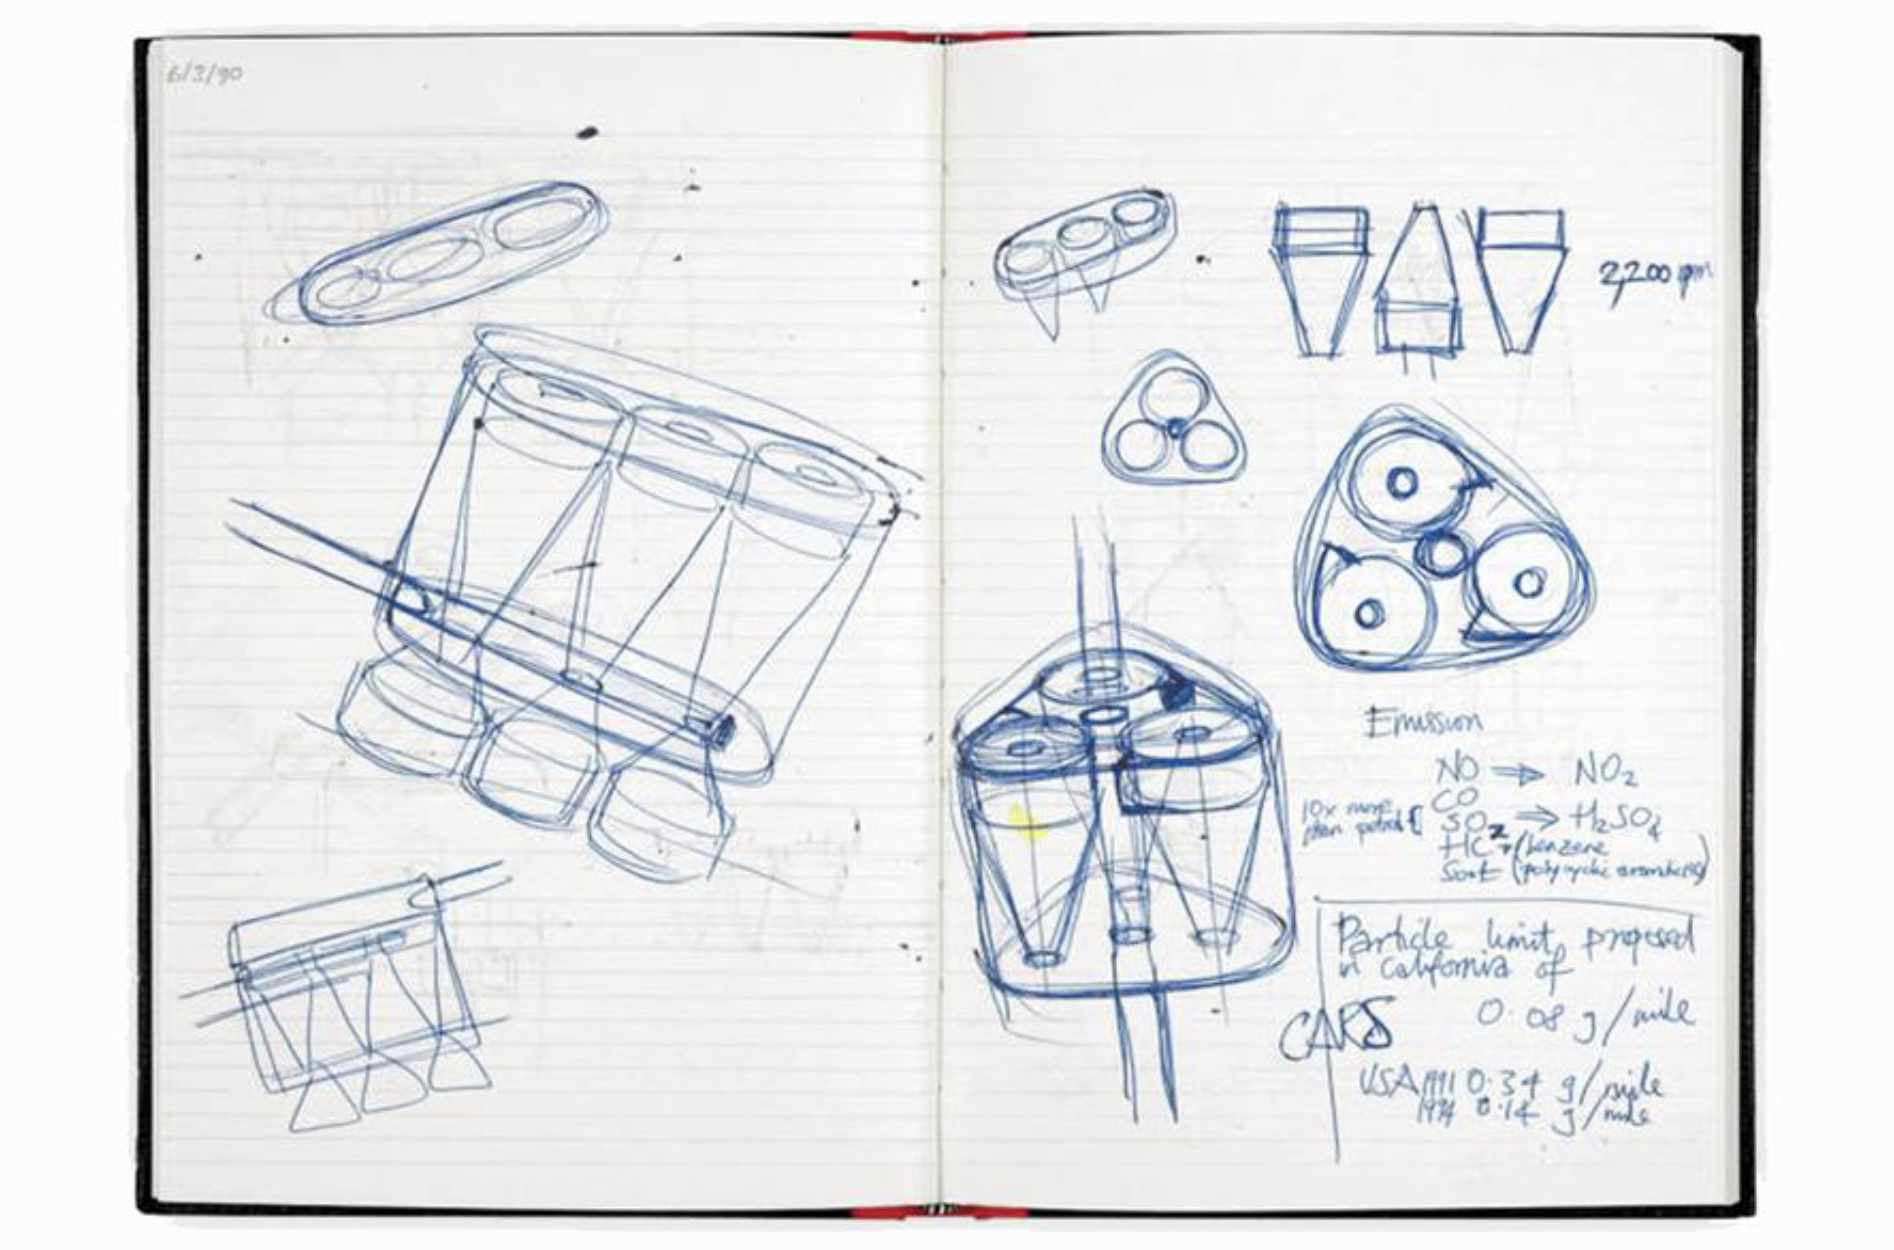 6/3/90
2,200 rpm
Emission
NO ⇒ NO2
CO
10x more
than petrol { SO2 ⇒ H2SO4
HC + (benzene
Soot (polycyclic aromatics)
Particle limit proposed
in California of
0.08 g/mile
CARS
USA 1991 0.34 g/mile
1994 0.14 g/mile